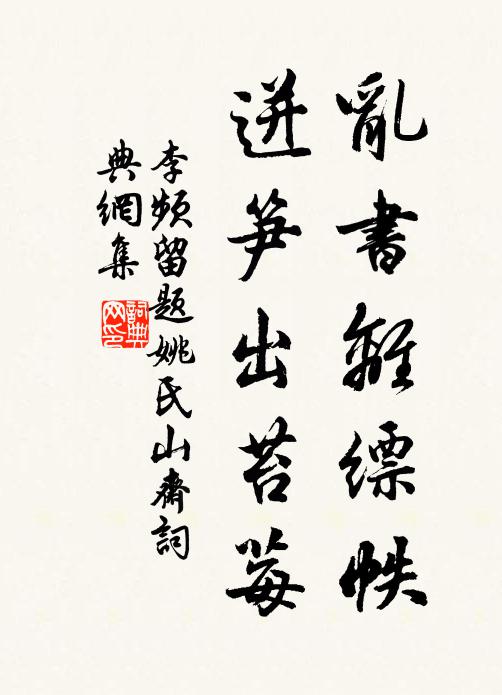 亂書離縹帙
迸笋出苔莓
李頻留題姚氏山齋詞
典網集
詞典
网印